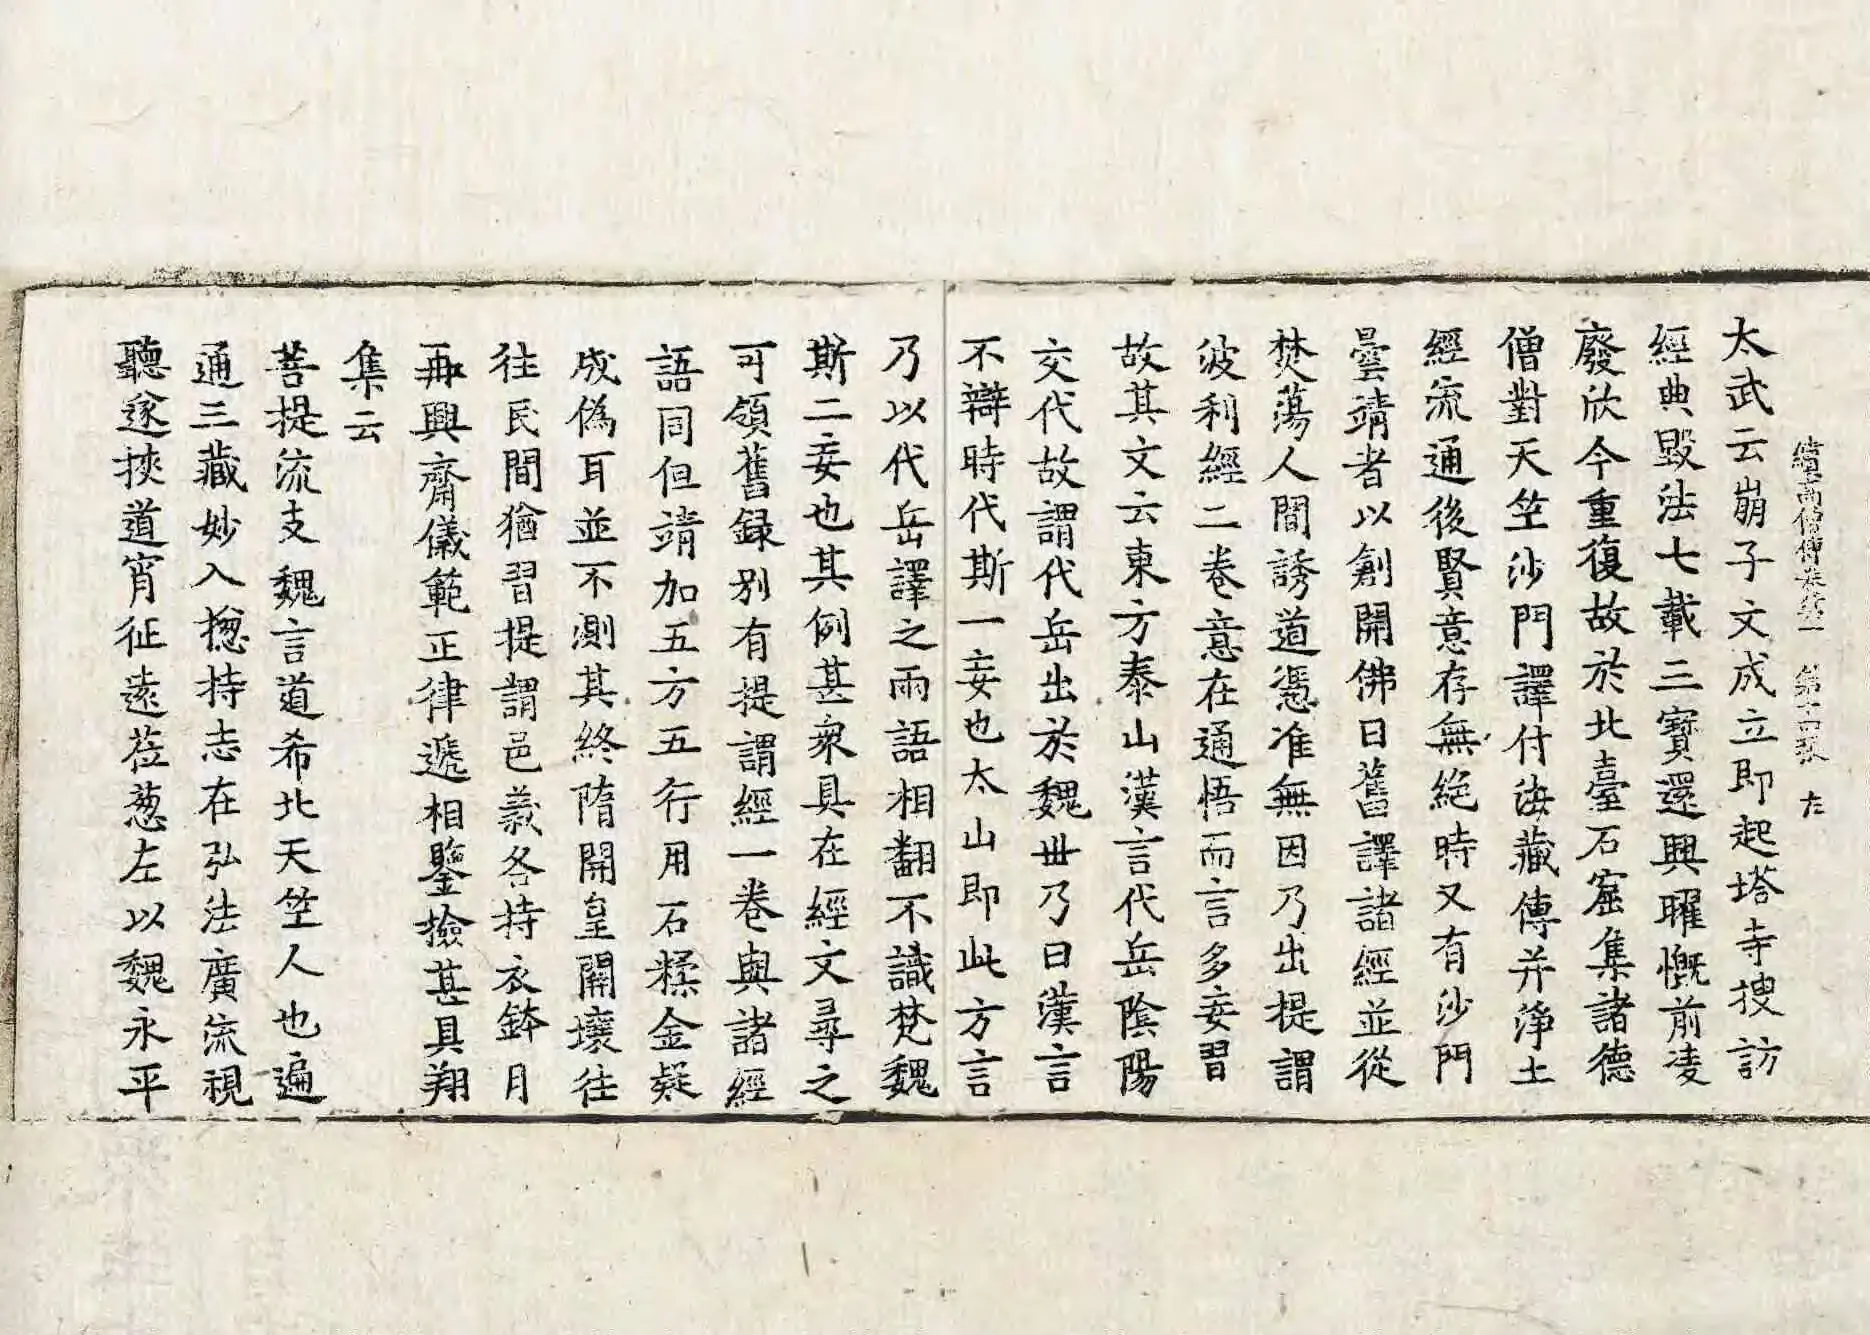 續高僧傳卷第一 第十四張 左
太武云崩子文成立即起塔寺搜訪
經典毀法七載三寶還興曜慨前凌
廢欣今重復故於北臺石窟集諸德
僧對天竺沙門譯付法藏傳并淨土
經流通後賢意存無絕時又有沙門
曇靖者以創開佛日舊譯諸經並從
焚蕩人間誘道憑准無因乃出提謂
波利經二卷意在通悟而言多妄習
故其文云東方泰山漢言代岳陰陽
交代故謂代岳出於魏世乃曰漢言
不辯時代斯一妄也太山即此方言
乃以代岳譯之兩語相翻不識梵魏
斯二妄也其例甚衆具在經文尋之
可領舊録別有提謂經一卷與諸經
語同但靖加五方五行用石糅金疑
成偽耳並不測其終隋開皇關壤往
往民間猶習提謂邑義各持衣鉢月
再興齋儀範正律遞相鑒撿甚具翔
集云
菩提流支魏言道希北天竺人也遍
通三藏妙入揔持志在弘法廣流視
聽遂挾道宵征遠莅葱左以魏永平